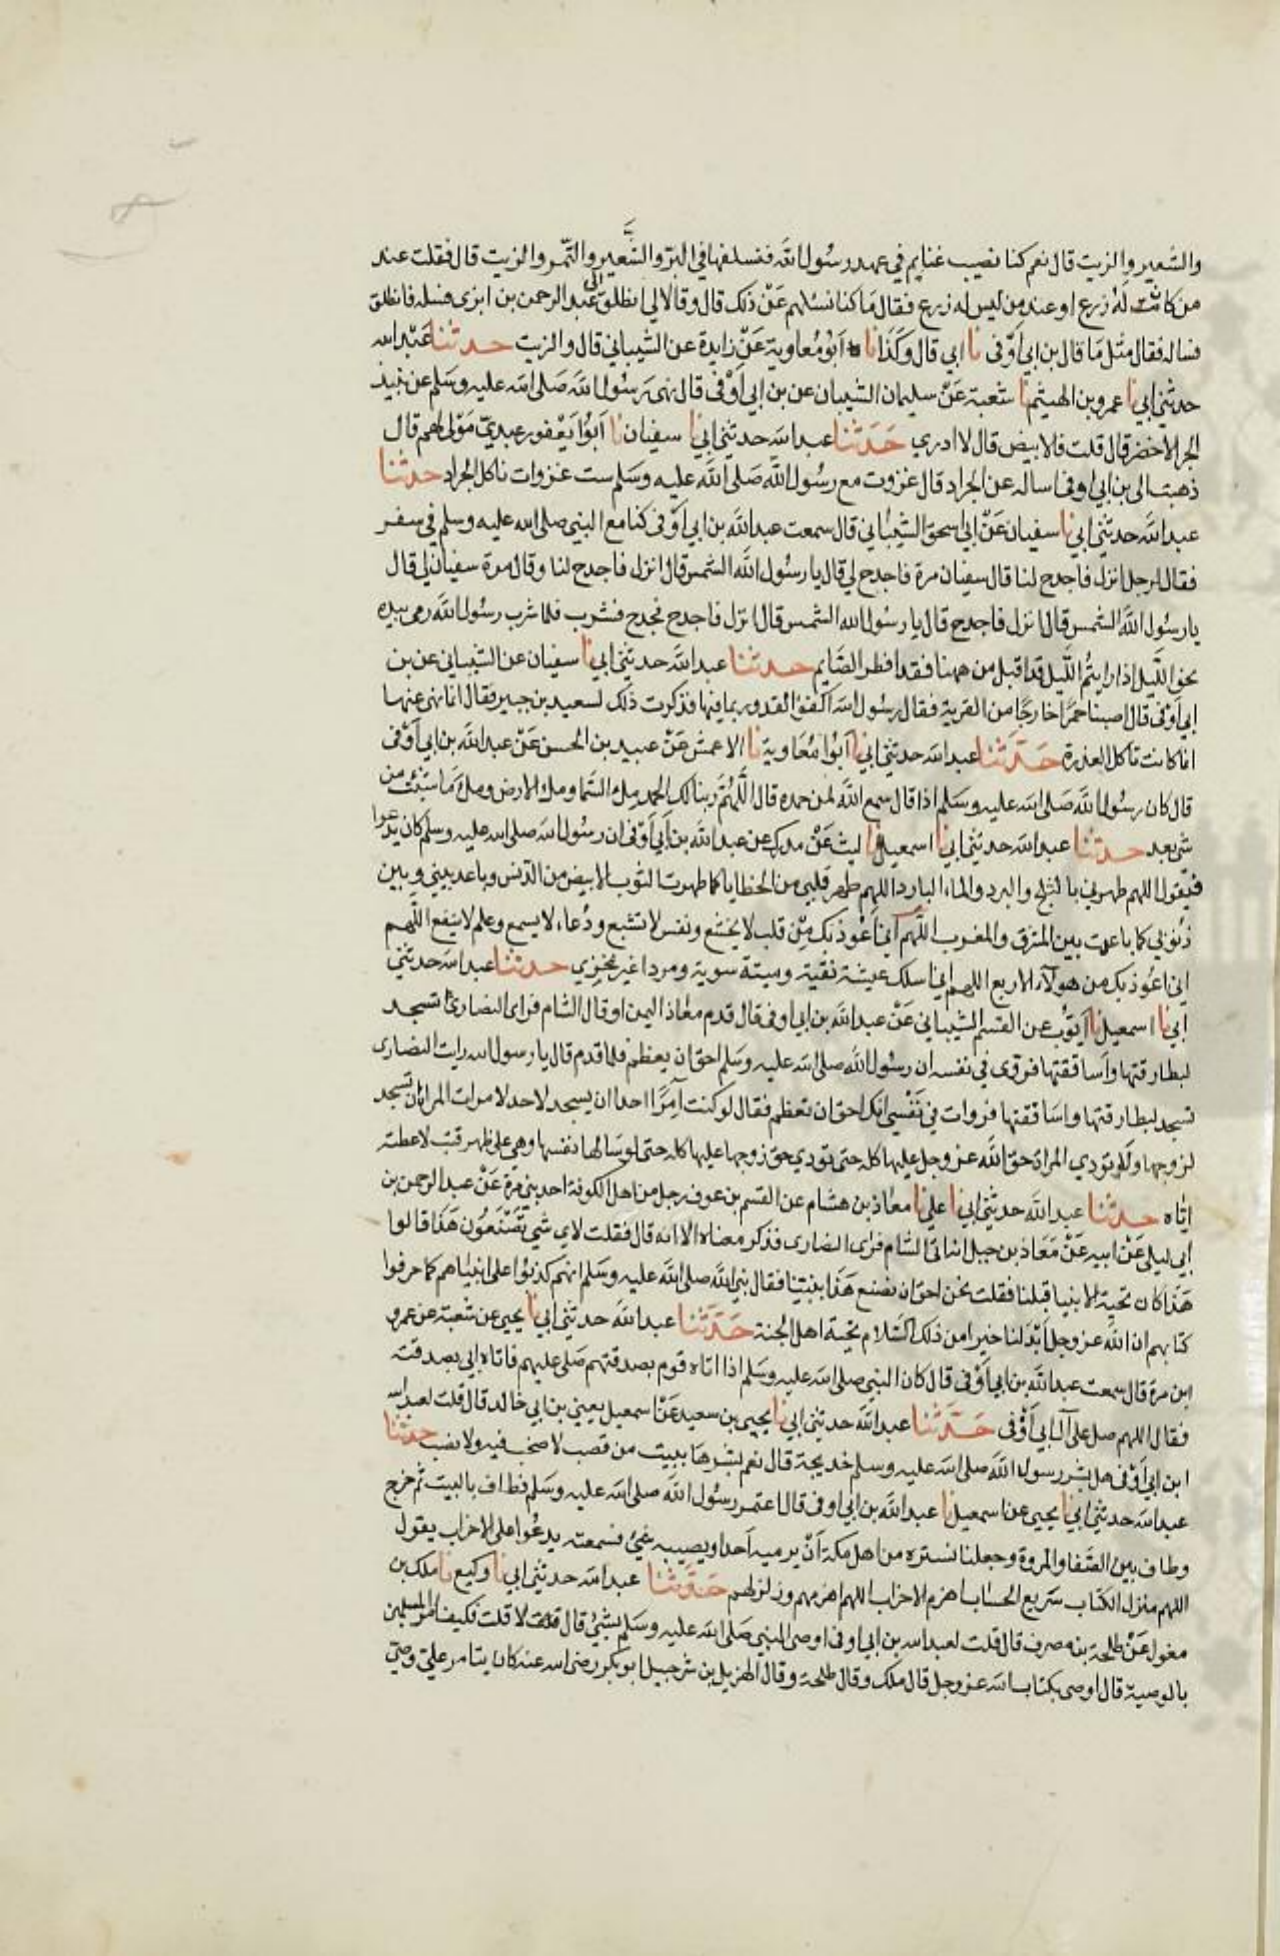 والشعير والزيت قال نعم كنا نصيب غنايم في عهد رسول الله فنسلفها في البر والشعير والتمر والزيت قال فقلت عند
من كانت له زرع او عند من ليس له زرع فقال ما كنا نسئلهم عن ذلك قال وقالا لي انطلق الى عبد الرحمن بن ابزى فسله فانطلق
فساله فقال مثل ما قال بن ابي اوفى نا ابي قال وكذا نا ابو معاوية عن زايدة عن الشيباني قال والزيت حدثنا عبد الله
حدثني ابي نا عمرو بن الهيثم نا شعبة عن سليمان الشيبان عن بن ابي اوفى قال نهى رسول الله صلى الله عليه وسلم عن نبيذ
الجر الاخضر قال قلت فالابيض قال لا ادري حدثنا عبد الله حدثني ابي نا سفيان نا ابوا يعفور عبدي مولى لهم قال
ذهبت الى بن ابي اوفى اساله عن الجراد قال غزوت مع رسول الله صلى الله عليه وسلم ست غزوات ناكل الجراد حدثنا
عبد الله حدثني ابي نا سفيان عن ابي اسحق الشيباني قال سمعت عبد الله بن ابي اوفى كنا مع النبي صلى الله عليه وسلم في سفر
فقال لرجل انزل فاجدح لنا قال سفيان مرة فاجدح لي قال يا رسول الله الشمس قال انزل فاجدح لنا وقال مرة سفيان لي قال
يا رسول الله الشمس قال انزل فاجدح قال يا رسول الله الشمس قال انزل فاجدح فجدح فشرب فلما شرب رسول الله رمى بيده
نحو الليل اذا رايتم الليل قد اقبل من ههنا فقد افطر الصايم حدثنا عبد الله حدثني ابي نا سفيان عن الشيباني عن بن
ابي اوفى قال اصبنا حمرا خارجا من القرية فقال رسول الله اكفوا القدور بما فيها فذكرت ذلك لسعيد بن جبير فقال انما نهى عنها
انها كانت تاكل العذرة حدثنا عبد الله حدثني ابي نا ابوا معاوية نا الاعمش عن عبيد بن الحسن عن عبد الله بن ابي أوفى
قال كان رسول الله صلى الله عليه وسلم اذا قال سمع الله لمن حمده قال اللهم ربنا لك الحمد مل السما ومل الارض ومل ما شئت من
شي بعد حدثنا عبد الله حدثني ابي نا اسمعيل نا ليث عن مدرك عن عبد الله بن ابي اوفى ان رسول الله صلى الله عليه وسلم كان يدعوا
فيقول اللهم طهرني بالثلج والبرد والماء البارد اللهم طهر قلبي من الخطايا كما طهرت الثوب الابيض من الدنس وباعد بيني وبين
ذنوبي كما باعدت بين المشرق والمغرب اللهم اني اعوذ بك من قلب لا يخشع ونفس لا تشبع ودعاء لا يسمع وعلم لا ينفع اللهم
اني اعوذ بك من هولاء الاربع اللهم اني اسلك عيشة نقية وميتة سوية ومردا غير مخزي حدثنا عبد الله حدثني
ابي نا اسمعيل نا ايوب عن القسم الشيباني عن عبد الله بن ابي اوفى قال قدم معاذ اليمن او قال الشام فراى النصارى تسجد
لبطارقتها واساقفتها فروى في نفسه ان رسول الله صلى الله عليه وسلم احق ان يعظم فلما قدم قال يا رسول الله رايت النصارى
تسجد لبطارقتها واساقفتها فروات في نفسي انك احق ان تعظم فقال لو كنت آمرا احدا ان يسجد لاحد لامرات المراة ان تسجد
لزوجها ولا تودي المراة حق الله عز وجل عليها كله حتى تودي حق زوجها عليها كله حتى لو سالها نفسها وهي على ظهر قتب لاعطته
اياه حدثنا عبد الله حدثني ابي نا علي نا معاذ بن هشام عن القسم بن عوف رجل من اهل الكوفة احد بني مرة عن عبد الرحمن بن
ابي ليلى عن ابيه عن معاذ بن جبل انه اتى الشام فراى النصارى فذكر معناه الا انه قال فقلت لاي شي تصنعون هذا قالوا
هذا كان تحية الانبيا قبلنا فقلت نحن احق ان نصنع هذا بنبينا فقال نبي الله صلى الله عليه وسلم انهم كذبوا على انبياهم كما حرفوا
كتابهم ان الله عز وجل ابدلنا خيرا من ذلك السلام تحية اهل الجنة حدثنا عبد الله حدثني ابي نا يحيى عن شعبة عن عمرو
ابن مرة قال سمعت عبد الله بن ابي اوفى قال كان النبي صلى الله عليه وسلم اذا اتاه قوم بصدقتهم صلى عليهم فاتاه ابي بصدقته
فقال اللهم صل على آل ابي أوفى حدثنا عبد الله حدثني ابي نا يحيى بن سعيد عن اسمعيل يعني بن ابي خالد قال قلت لعبد الله
ابن ابي أوفى هل بشر رسول الله صلى الله عليه وسلم خديجة قال نعم بشرها ببيت من قصب لا صخب فيه ولا نصب حدثنا
عبد الله حدثني ابي نا يحيى عن اسمعيل نا عبد الله بن ابي اوفى قال اعتمر رسول الله صلى الله عليه وسلم فطاف بالبيت ثم خرج
وطاف بين الصفا والمروة وجعلنا نستره من اهل مكة أن يرميه أحد او يصيبه بشئ فسمعته يدعوا على الاحزاب يقول
اللهم منزل الكتاب سريع الحساب اهزم الاحزاب اللهم اهزمهم وزلزلهم حدثنا عبد الله حدثني ابي نا وكيع نا ملك بن
مغول عن طلحة بن مصرف قال قلت لعبد الله بن ابي اوفى اوصى النبي صلى الله عليه وسلم بشئ قال لا قلت فكيف امر المسلمين
بالوصية قال اوصى بكتاب الله عز وجل قال ملك وقال طلحة وقال الهزيل بن شرجبيل ابو بكر رضى الله عنه كان يتامر على وصي